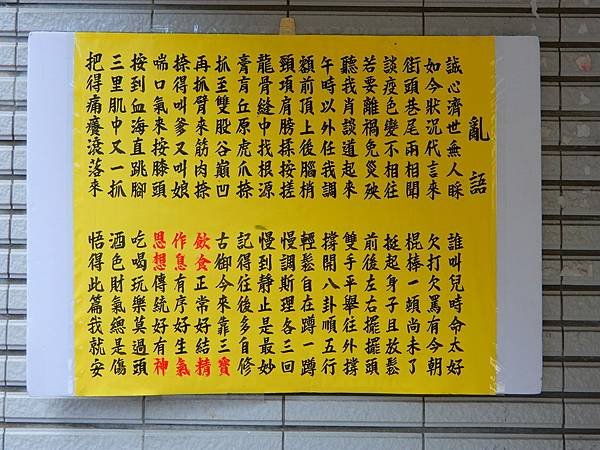 亂語
誠心濟世無人睬
如今狀況代言來
街頭巷尾兩相聞
談疫色變不相往
若要離禍免災殃
聽我肖談道起來
午時以外任我調
額前頂上後腦梢
頸項肩膀揉按搓
龍骨縫中找根源
膏肓丘原虎爪捺
抓至雙股谷巔凹
再抓臂來筋肉捺
捺得叫爹又叫娘
喘口氣來按膝頭
按到血海直跳腳
三里肌中又一抓
把得痛癢滾落來
誰叫兒時命太好
欠打欠罵有今朝
棍棒一頓尚未了
挺起身子且放鬆
前後左右擺擺頭
雙手平舉往外撐
撐開八卦順五行
輕鬆自在蹲一蹲
慢調斯理各三回
慢到靜止是最妙
記得往後多自修
古御今來靠三寶
飲食正常好結精
作息有序好生氣
思想傳統好有神
吃喝玩樂莫過頭
酒色財氣總是傷
悟得此篇我就安